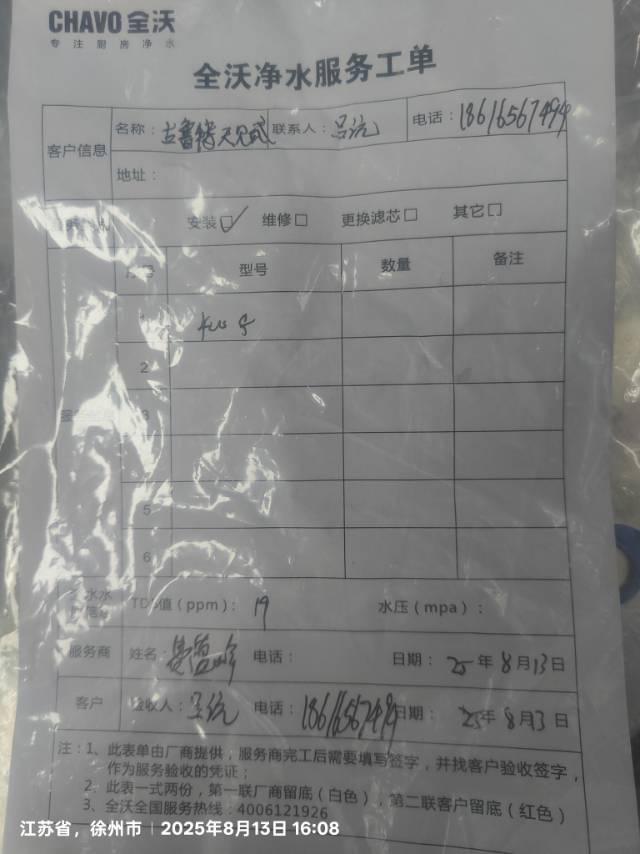 CHAVO 全沃
专注厨房净水
全沃净水服务工单
客户信息
名称： 联系人： 电话：18616567494
地址：
安装☑ 维修□ 更换滤芯□ 其它□
序号 型号 数量 备注
1
2
3
5
6
TDS值（ppm）：19 水压（mpa）：
服务商 姓名： 电话： 日期：25年8月13日
客户 验收人： 电话：18616567494 日期：25年8月13日
注：1、此表单由厂商提供，服务商完工后需要填写签字，并找客户验收签字，
作为服务验收的凭证；
2、此表一式两份，第一联厂商留底（白色），第二联客户留底（红色）
3、全沃全国服务热线：4006121926
江苏省，徐州市 | 2025年8月13日 16:08